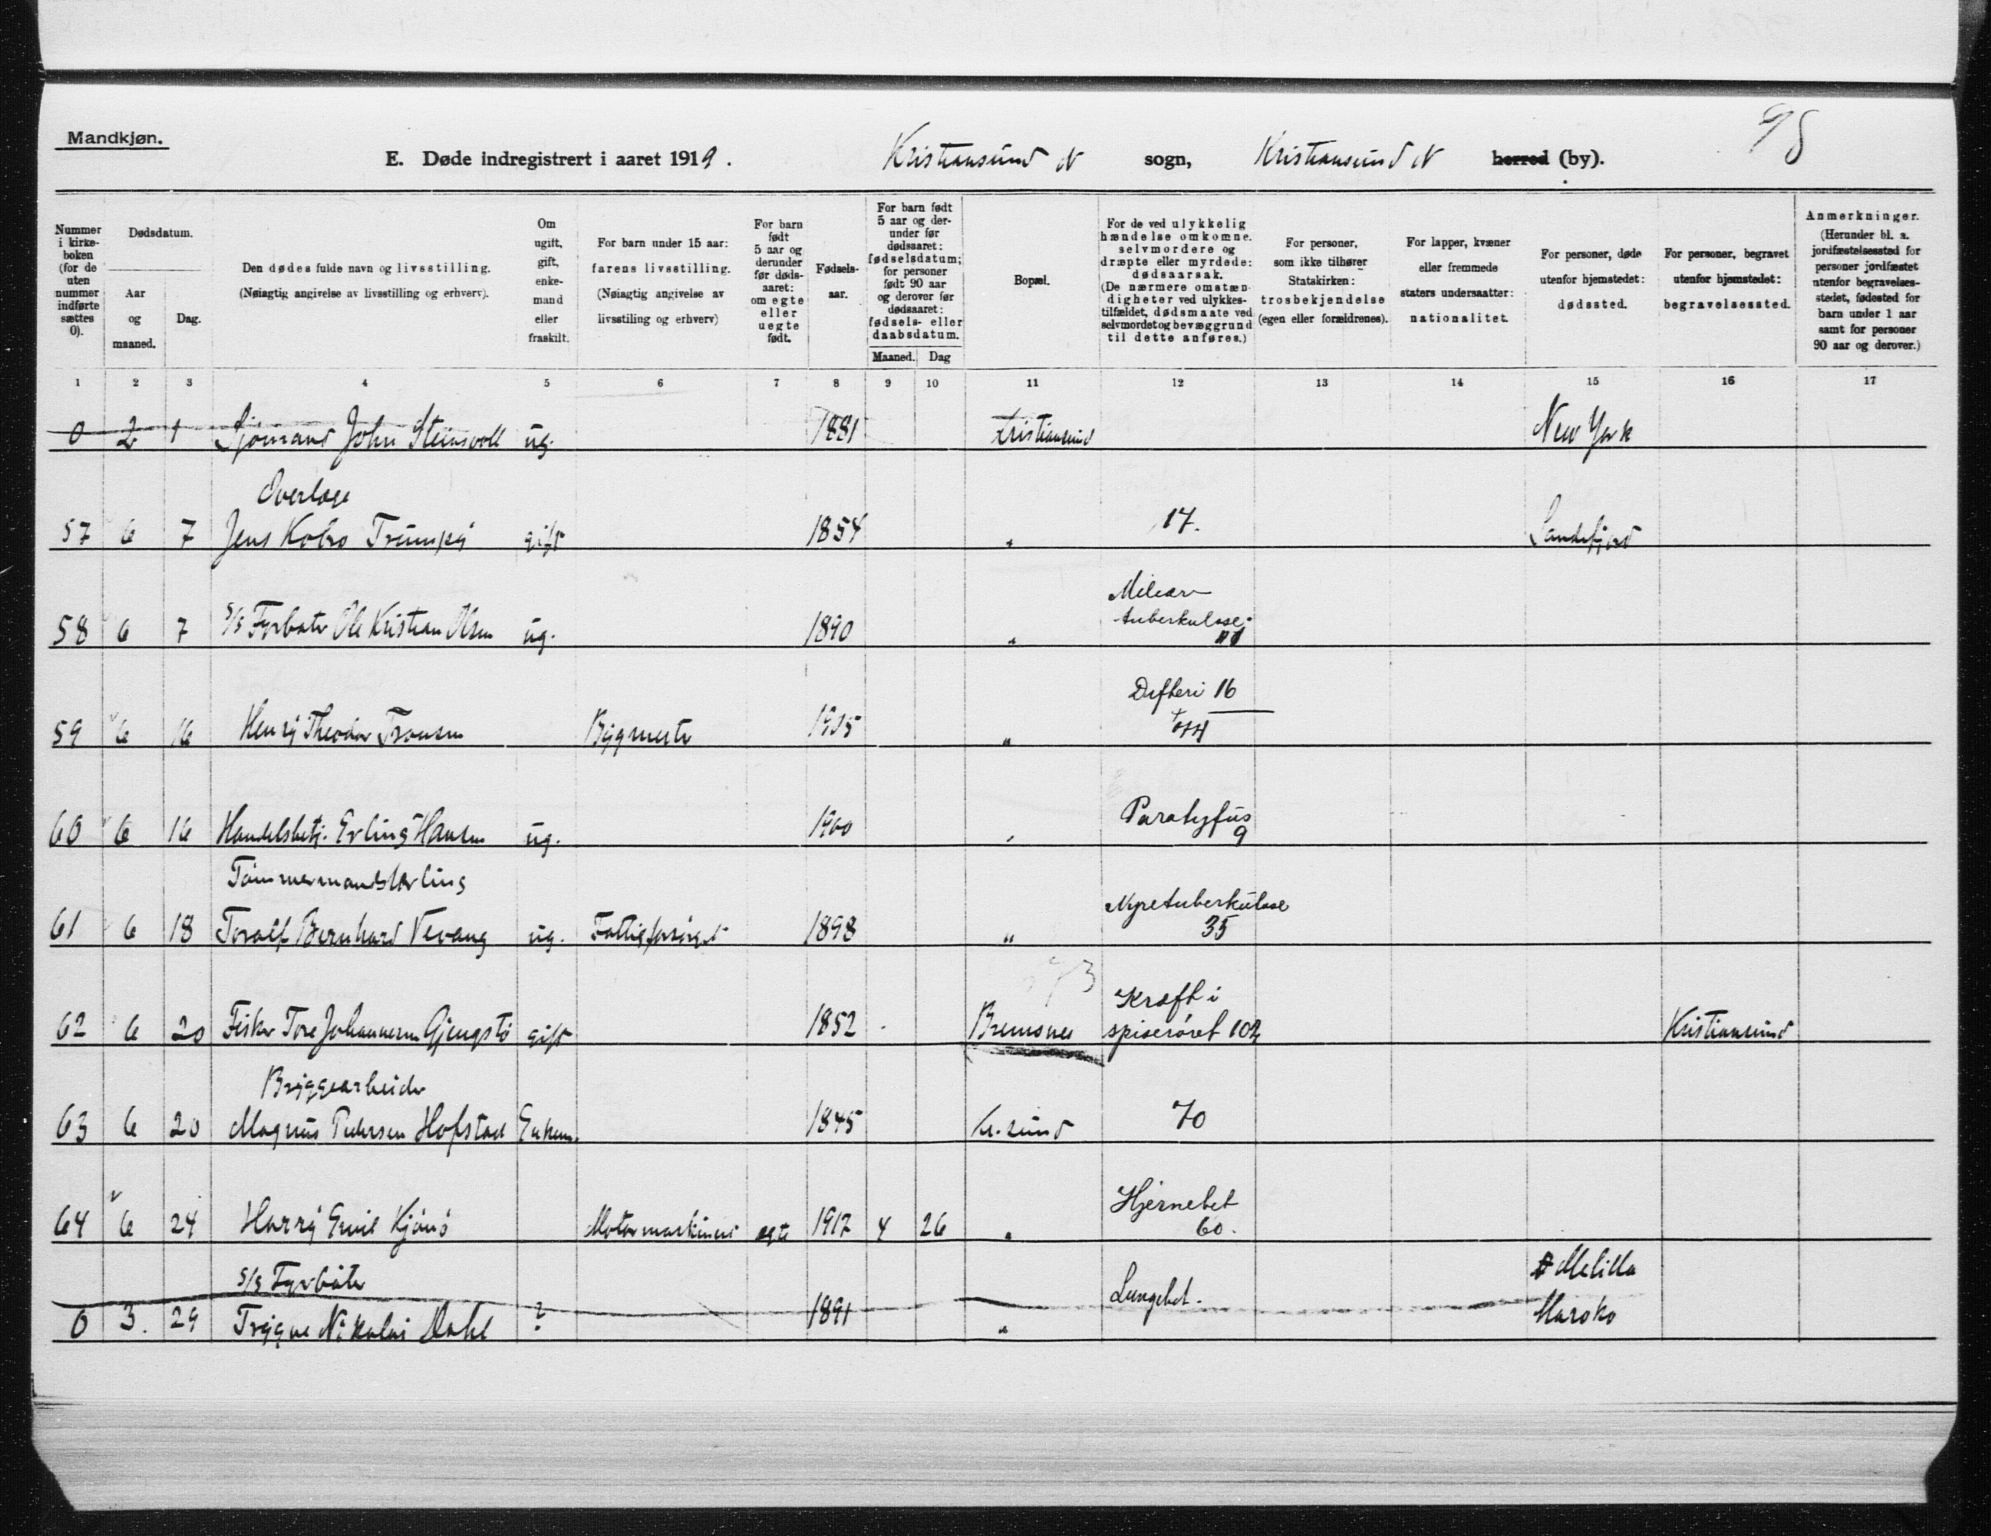 98
Mandkjøn.
E. Døde indregistrert i aaret 1919. Kristiansund N sogn, Kristiansund N herred (by).
Nummer i kirkeboken (for de uten nummer indførte sættes 0).
Dødsdatum.
Aar og maaned.
Dag.
Den dødes fulde navn og livsstilling.
(Nøiagtig angivelse av livsstilling og erhverv).
Om ugift, gift, enkemand eller fraskilt.
For barn under 15 aar: farens livsstilling.
(Nøiagtig angivelse av livsstiling og erhverv)
For barn født 5 aar og derunder før dødsaaret: om egte eller uegte født.
Fødselsaar.
For barn født 5 aar og derunder før dødsaaret: fødselsdatum; for personer født 90 aar og derover før dødsaaret: fødsels- eller daabsdatum.
Maaned. Dag
Bopæl.
For de ved ulykkelig hændelse omkomne, selvmordere og dræpte eller myrdede: dødsaarsak.
(De nærmere omstændigheter ved ulykkestilfældet, dødsmaate ved selvmordet og bevæggrund til dette anføres.)
For personer, som ikke tilhører Statskirken: trosbekjendelse (egen eller forældrenes).
For lapper, kvæner eller fremmede staters undersaatter: nationalitet.
For personer, døde utenfor hjemstedet: dødssted.
For personer, begravet utenfor hjemstedet: begravelsessted.
Anmerkninger.
(Herunder bl. a. jordfæstelsessted for personer jordfæstet utenfor begravelsesstedet, fødested for barn under 1 aar samt for personer 90 aar og derover.)
1 2 3 4 5 6 7 8 9 10 11 12 13 14 15 16 17
0 2 1 Sjømand John Steinsvoll ug. 1881 Kristiansund New York
Overlæge
57 6 7 Jens Kobro Trumpy gift 1854 " 17. Sandefjord
Miliær
58 6 7 s/s Fyrbøter Ole Kristian Olsen ug. 1890 " tuberkulose
Difteri 16
59 6 16 Henry Theodor Fransen Bygmester 1915 "
60 6 16 Handelsbetj. Erling Hansen ug. 1900 " Paratyfus 9
Tømmermandslærling
61 6 18 Toralf Bernhard Vevang ug. Fattigforsørget 1898 " Nyretuberkulose 35
Kræft i
62 6 20 Fisker Tore Johannesen Gjengstø gift 1852 Bremsnes spiserøret 104 Kristiansund
Bryggearbeider
63 6 20 Magnus Pedersen Hofstad Enkem. 1845 Kr.sund 70
64 6 24 Harry Emil Kjønø Motormaskinist egte 1917 4 26 " Hjernebet 60.
s/s Fyrbøter Melilla
0 3. 29 Trygve Nikolai Dahl ? 1891 " Lungebet. Maroko